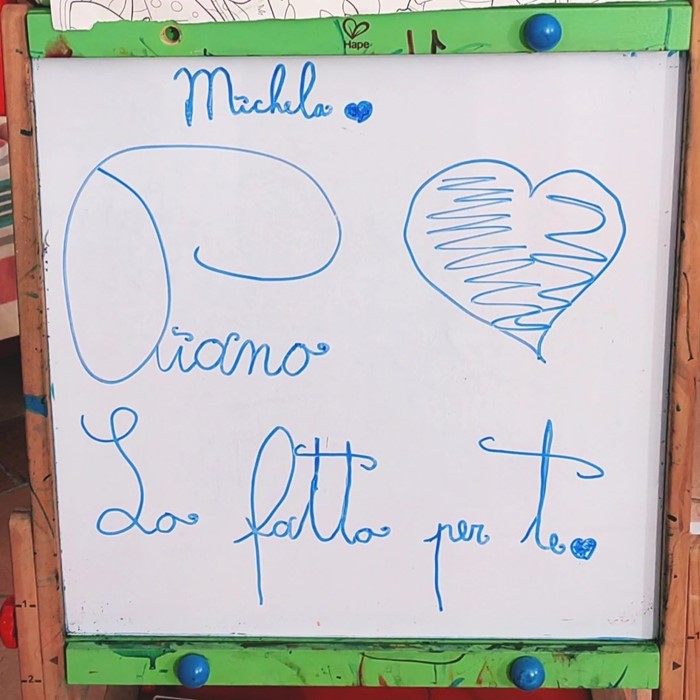 Hape
Michela
Piano
Lo fatto per te
1
2
1